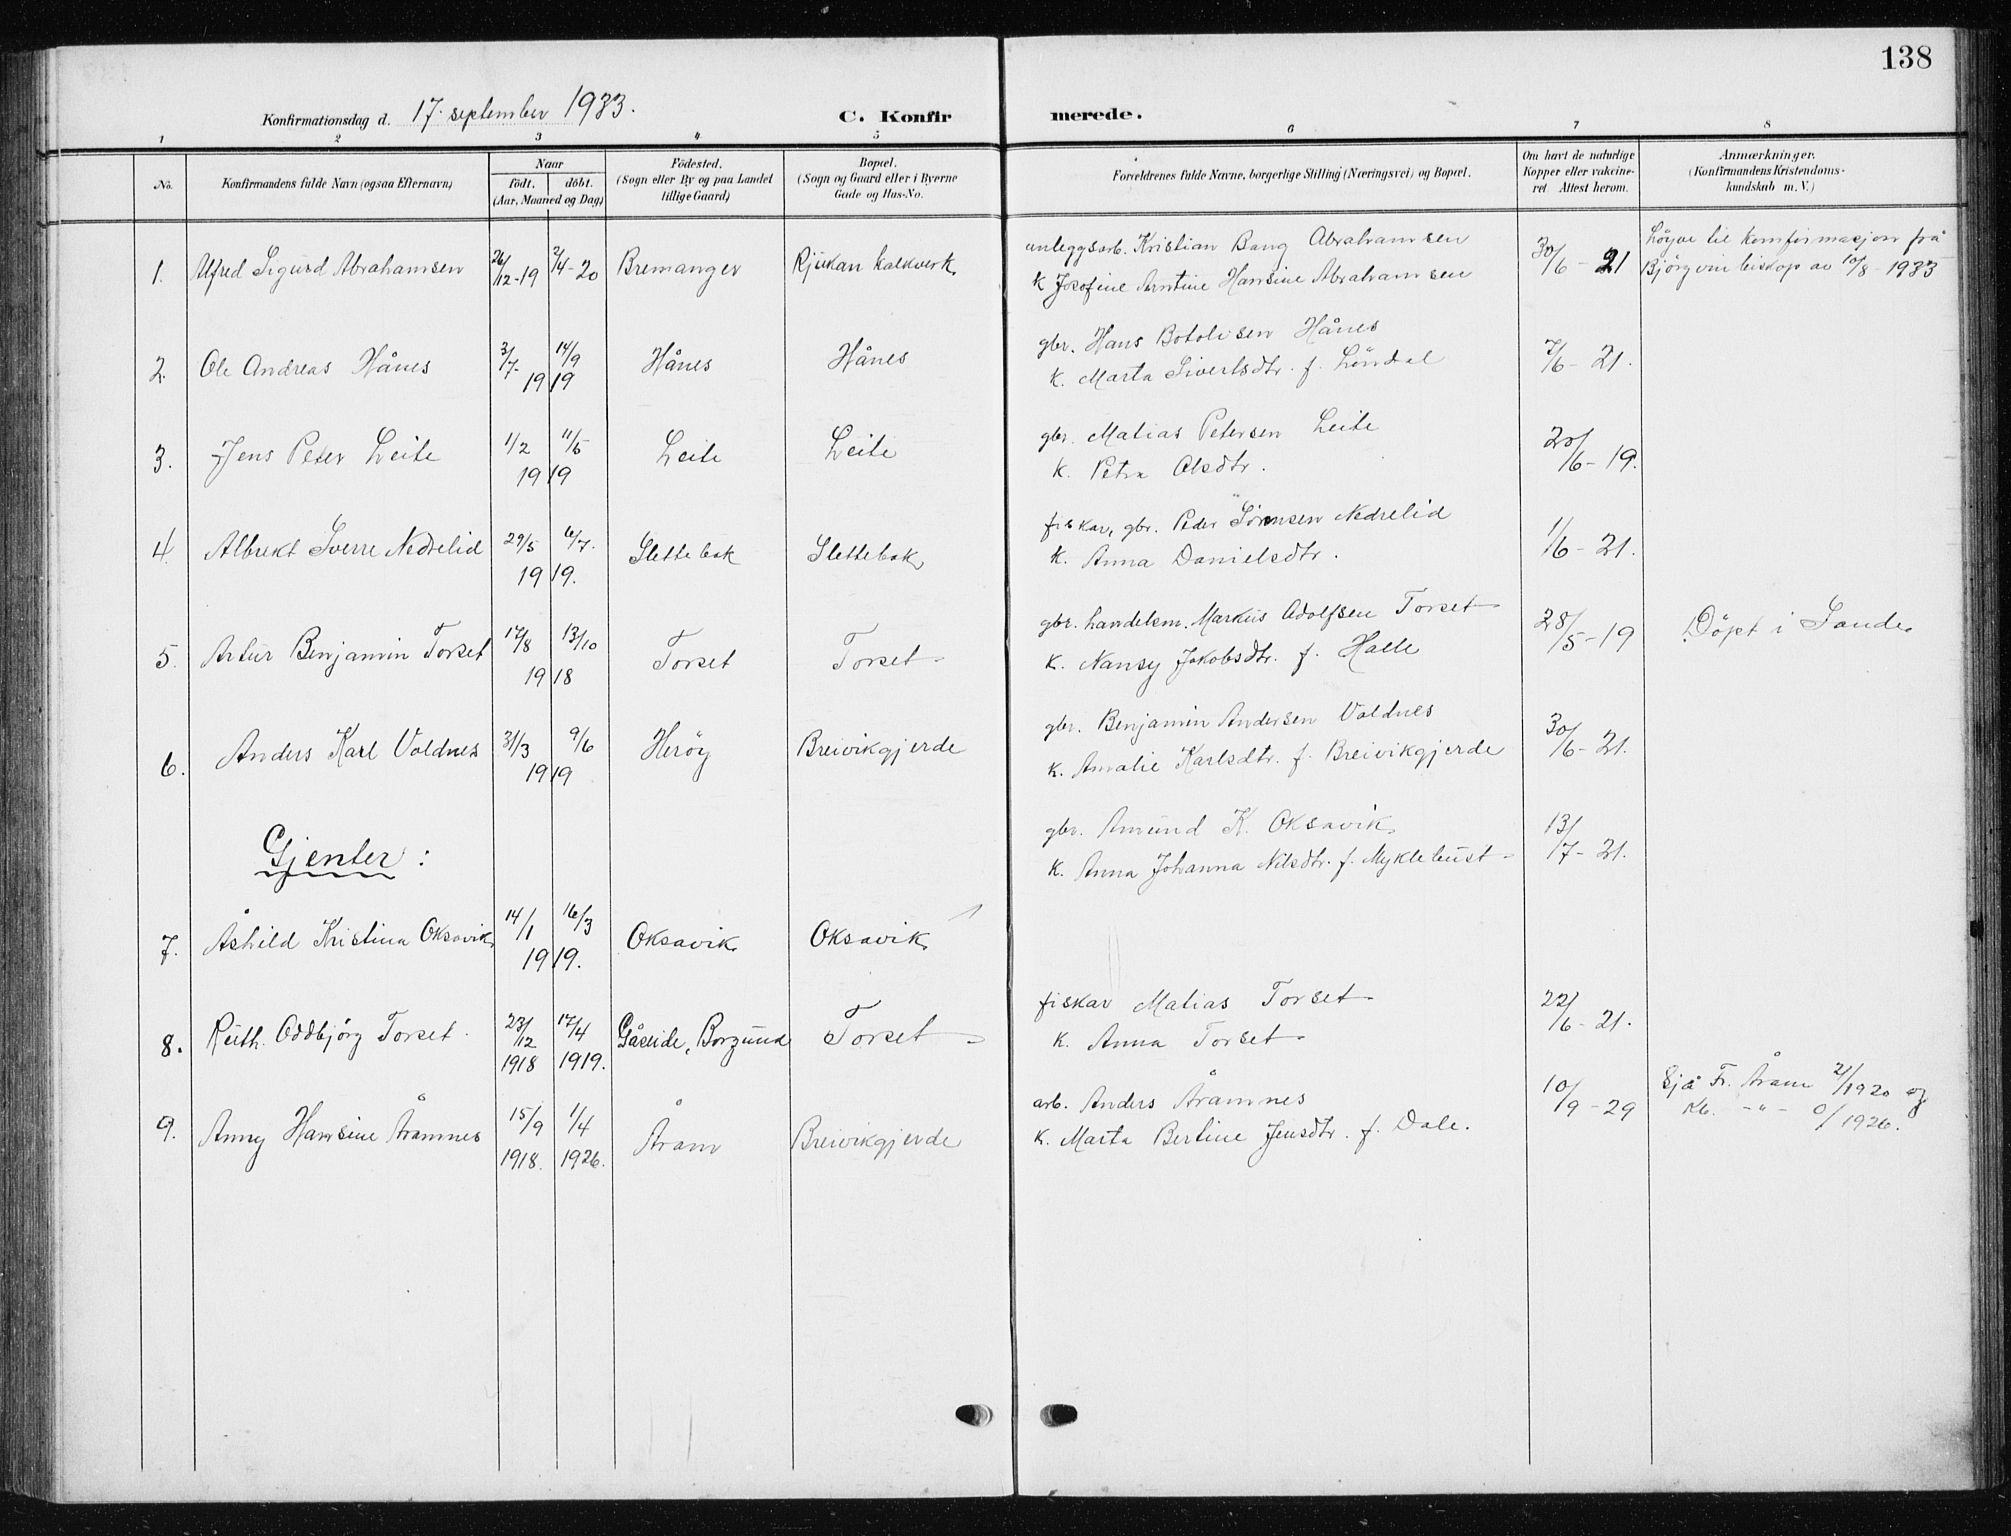 138
Konfirmationsdag d. 17. september 1933.
C. Konfirmerede.
1 2 3 4 5 6 7 8
No.
Konfirmandens fulde Navn (ogsaa Efternavn)
Naar
födt. döbt.
(Aar, Maaned og Dag)
Födested.
(Sogn eller By og paa Landet
tillige Gaard)
Bopæl.
(Sogn og Gaard eller i Byerne
Gade og Hus-No.
Forældrenes fulde Navne, borgerlige Stilling (Næringsvei) og Bopæl.
Om havt de naturlige
Kopper eller vakcine-
ret. Attest herom.
Anmærkninger.
(Konfirmandens Kristendoms-
kundskab m. V.)
1. Alfred Sigurd Abrahamsen 26/12-19 2/4-20 Bremanger Rjukan kalkverk
anleggsarb. Kristian Bang Abrahamsen
k Josefine Arntine Hansine Abrahamsen
30/6-21
Löyve til konfirmasjon frå
Björgvin biskop av 10/8-1933
2. Ole Andreas Hånes 3/7- 14/9 1919 Hånes Hånes
gbr. Hans Botolvsen Hånes
k. Marta Sivertsdtr. f. Löndal
7/6-21.
3. Jens Peter Leite 1/2 11/5 1919 Leite Leite
gbr. Matias Petersen Leite
k. Petra Olsdtr.
20/6-19.
4. Albrekt Sverre Nedrelid 29/5 6/7. 1919. Slettebak Slettebak
fiskar, gbr. Peder Sörensen Nedrelid
k. Anna Danielsdtr.
1/6-21.
5. Artur Benjamin Torset 17/8 13/10 1918 Torset Torset
gbr. handelsm. Markus Adolfsen Torset
k. Nansy Jakobsdtr. f. Halle
28/5-19
Döpt i Sande
6. Anders Karl Voldnes 31/3 9/6 1919 Heröy Breivikgjerde
gbr. Benjamin Andersen Voldnes
k. Amalie Karlsdtr. f. Breivikgjerde
30/6-21.
Gjenter:
7. Åshild Kristina Oksavik 14/1 16/3 1919. Oksavik Oksavik
gbr. Amund K. Oksavik
k. Anna Johanna Nilsdtr. f. Myklebust
13/7-21.
8. Ruth Oddbjörg Torset 23/12 1918 17/4 1919. Gåseide, Borgund Torset
fiskar Matias Torset
k. Anna Torset
22/6-21.
9. Anny Hansine Åramnes 15/9 1918. 1/4 1926. Åram Breivikgjerde
arb. Anders Åramnes
k. Marta Bertine Jensdtr. f. Dale.
10/9-29
Sjå Fr. Åram 21/1920 og
Kb. -"- 0/1926.